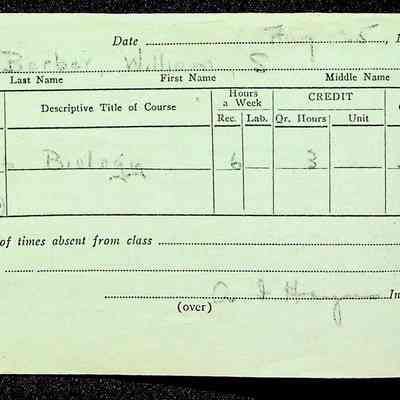 Date Aug 25, 1
Barber, William, S
Last Name First Name Middle Name
Descriptive Title of Course Hours a Week CREDIT
Rec. Lab. Qr. Hours Unit
Biology 6 3
of times absent from class
In
(over)